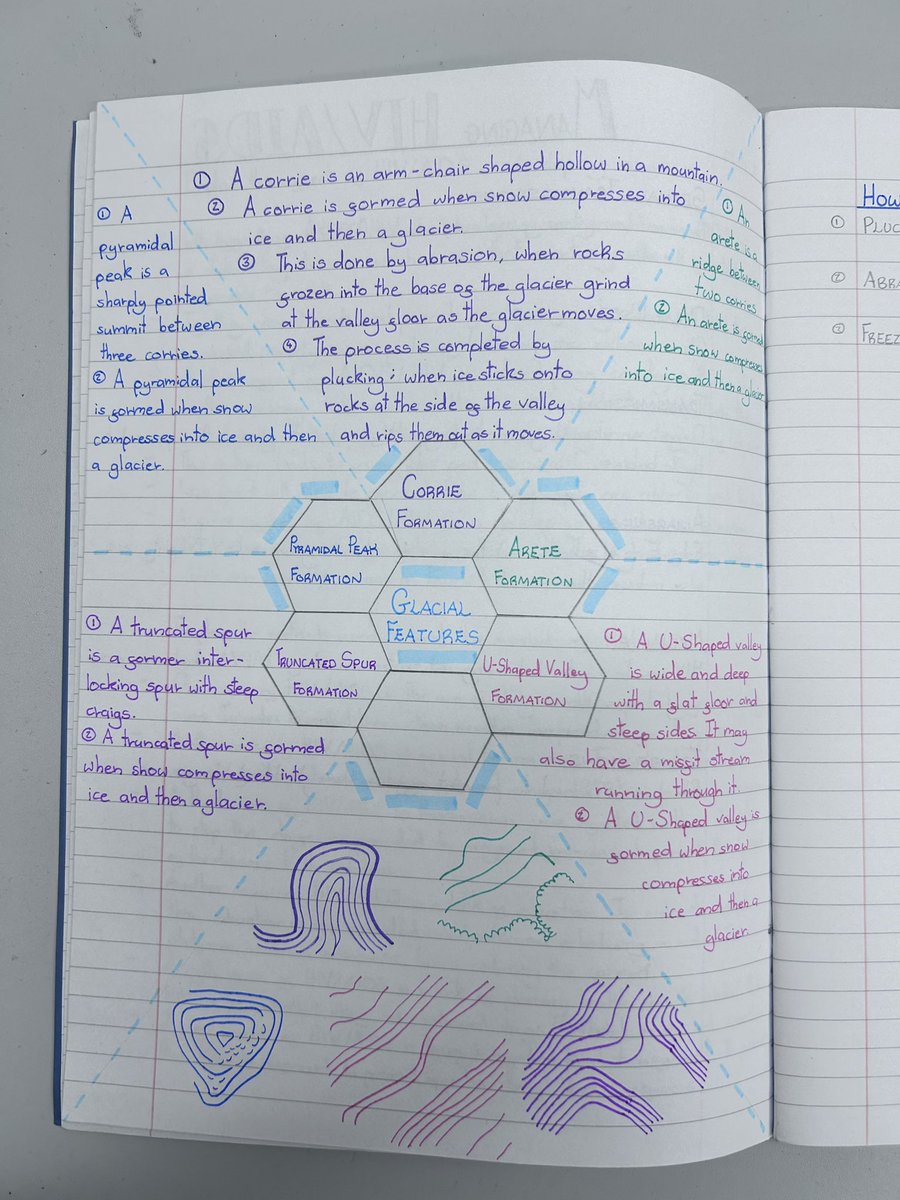 ① A corrie is an arm-chair shaped hollow in a mountain.
② A corrie is formed when snow compresses into
ice and then a glacier.
③ This is done by abrasion, when rocks
frozen into the base of the glacier grind
at the valley floor as the glacier moves.
④ The process is completed by
plucking; when ice sticks onto
rocks at the side of the valley
and rips them out as it moves.
① A
pyramidal
peak is a
sharply pointed
summit between
three corries.
② A pyramidal peak
is formed when snow
compresses into ice and then
a glacier.
① An
arete is a
ridge between
two corries
② An arete is formed
when snow compresses
into ice and then a glacier
CORRIE
FORMATION
PYRAMIDAL PEAK
FORMATION
ARETE
FORMATION
GLACIAL
FEATURES
TRUNCATED SPUR
FORMATION
U-Shaped Valley
FORMATION
① A truncated spur
is a former inter-
locking spur with steep
craigs.
② A truncated spur is formed
when show compresses into
ice and then a glacier.
① A U-Shaped valley
is wide and deep
with a flat floor and
steep sides. It may
also have a misfit stream
running through it.
② A U-Shaped valley is
formed when snow
compresses into
ice and then a
glacier.
How
① PLUC
② ABRA
② FREEZ